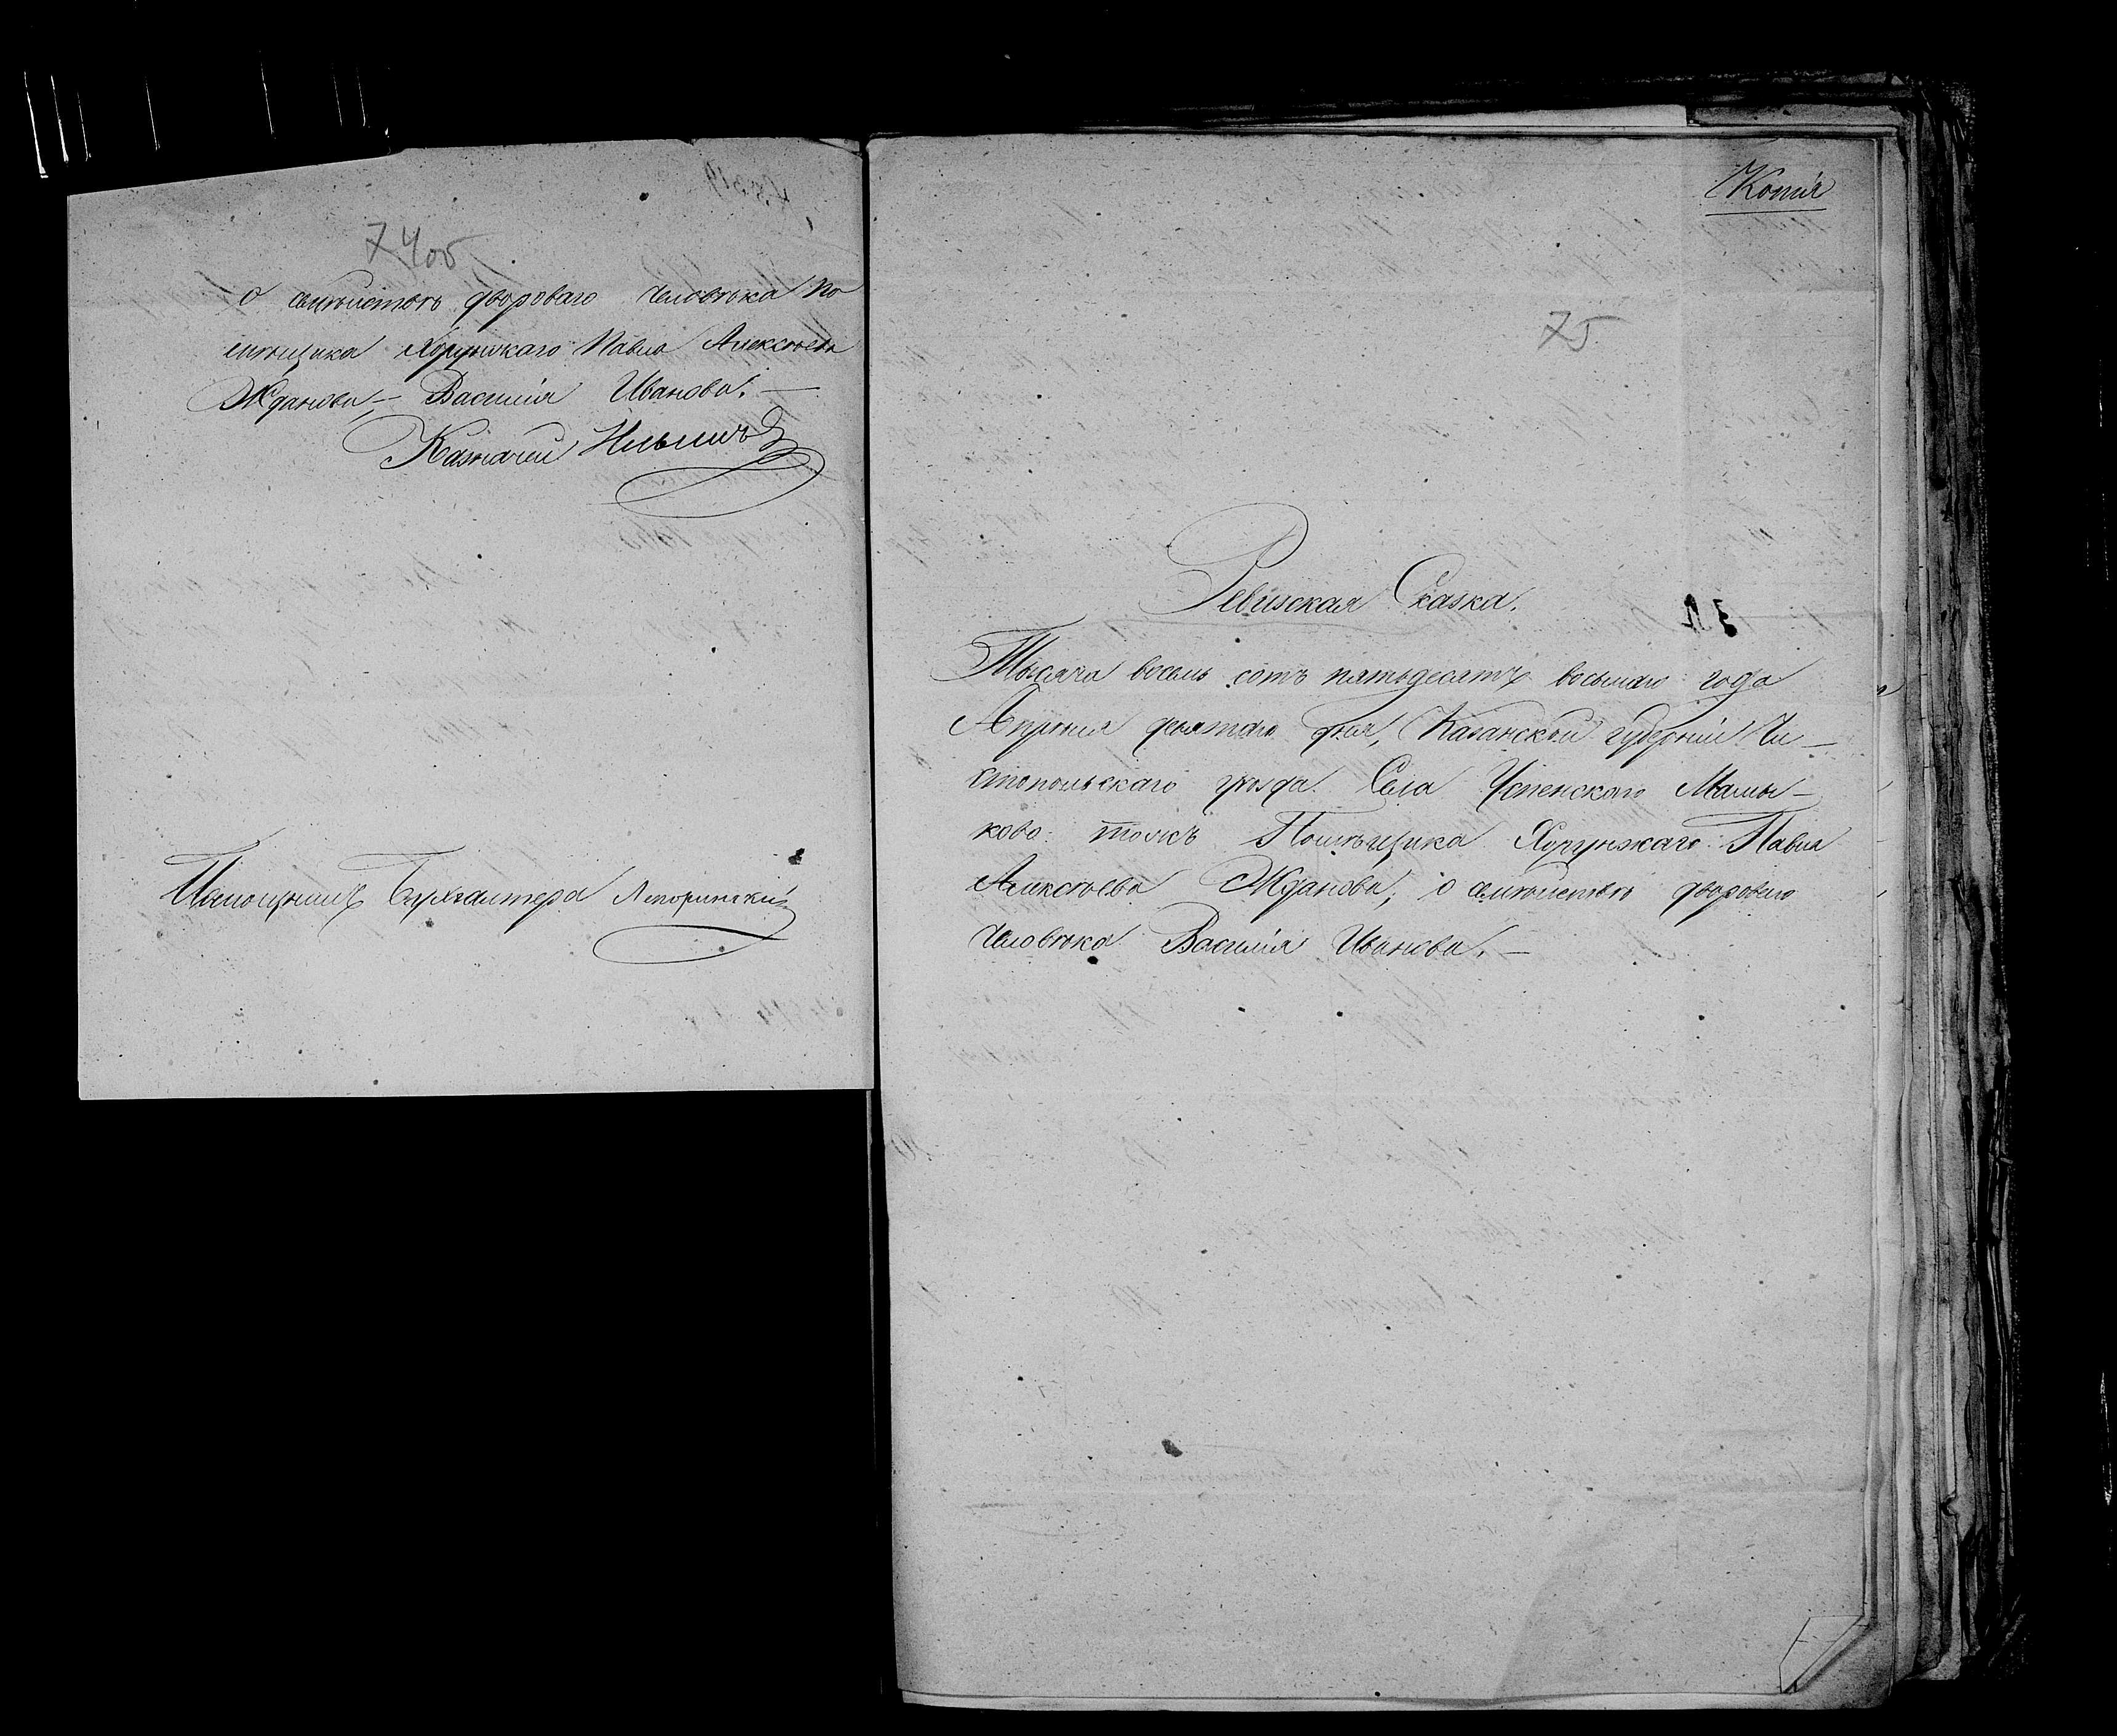 74об
о семѣйствѣ двороваго человѣка по
мѣщика Хорунжаго Павла Алексѣева
Жданова – Василія Иванова. –
Казначей Ильинъ
Помощникъ Бухгалтера
Копія
75
Ревизская Сказка.
Тысяча восемь сотъ пятьдесятъ восьмаго года
Апрѣля девятаго дня, Казанской губерніи Чи –
стопольскаго уѣзда Села Успенскаго Мамы –
ково тожъ Помѣщика Хорунжаго Павла
Алексѣева Жданова, о семѣйствѣ двороваго
человѣка Василія Иванова. –